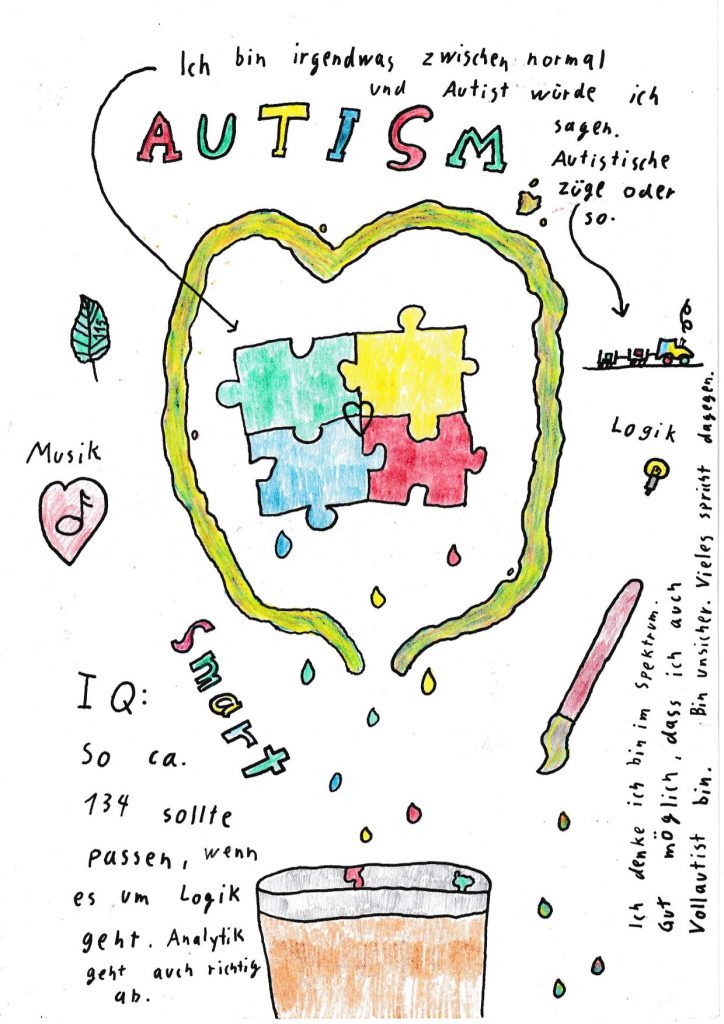 Ich bin irgendwas zwischen normal
und Autist würde ich
sagen.
Autistische
züge oder
so.
AUTISM
Musik
Logik
smart
IQ:
So ca.
134 sollte
passen, wenn
es um Logik
geht. Analytik
geht auch richtig
ab.
Ich denke ich bin im Spektrum.
Gut möglich, dass ich auch
Vollautist bin. Bin unsicher. Vieles spricht dagegen.